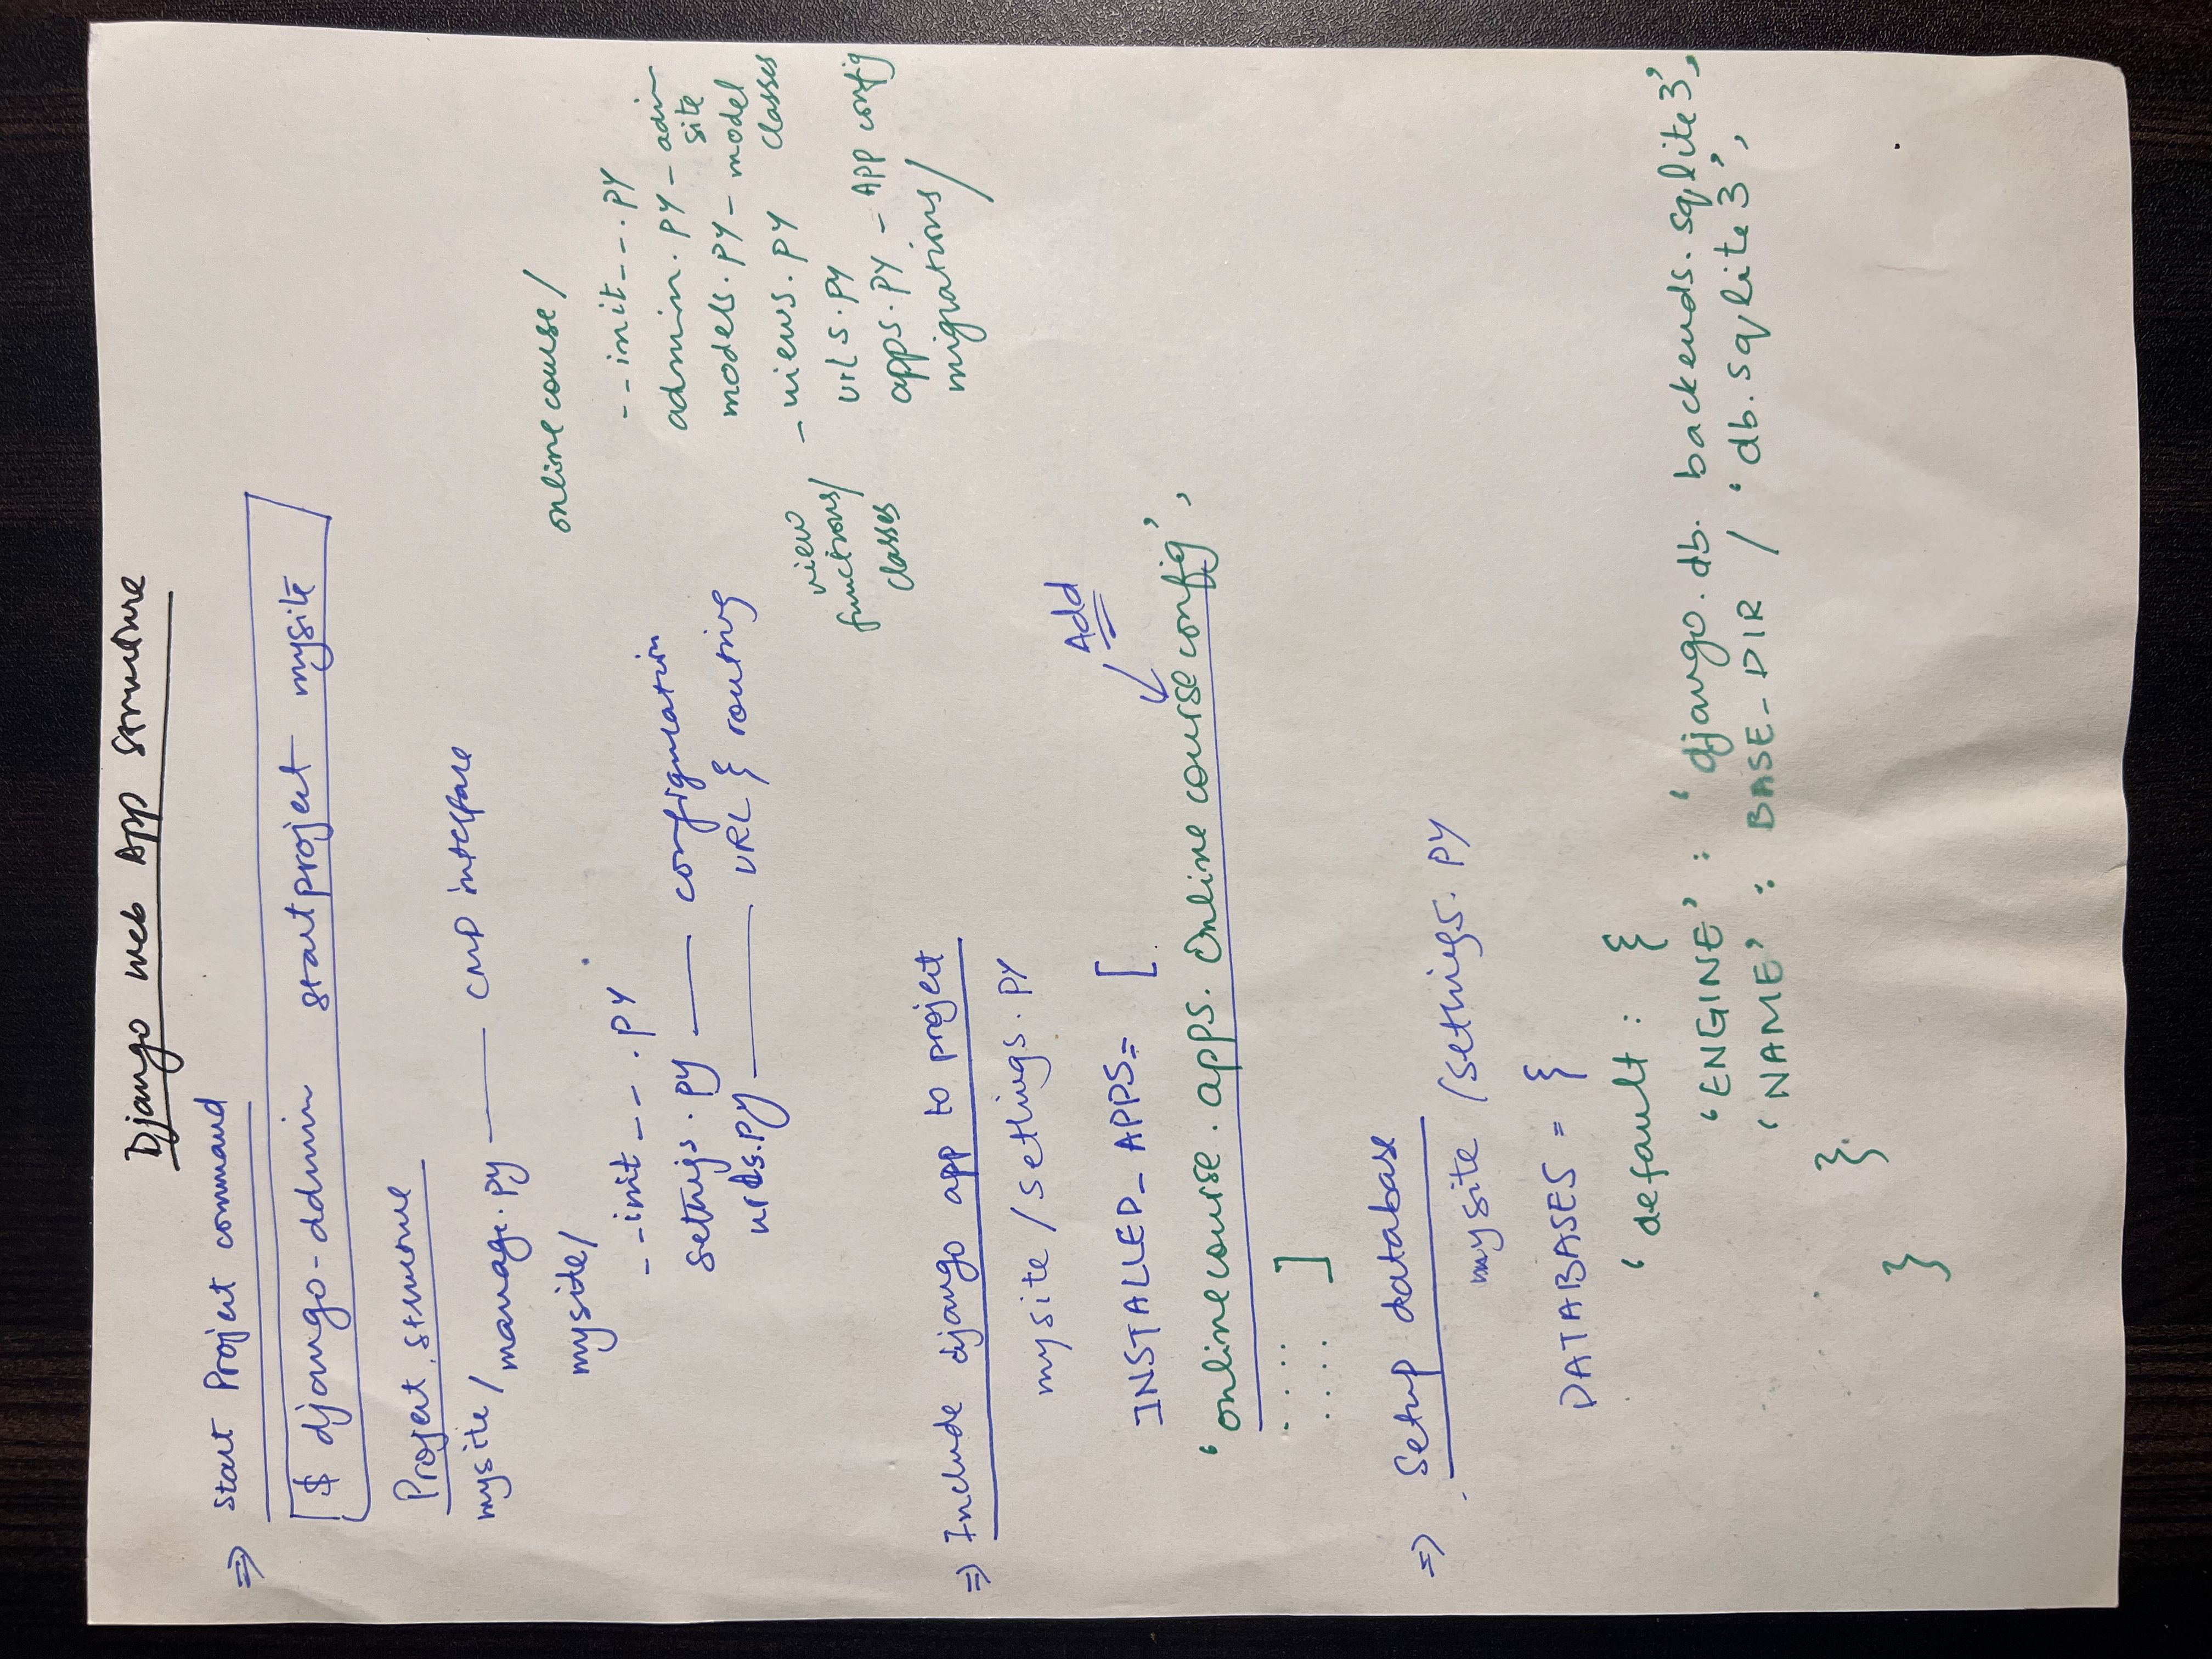 Django web App structure
=> start Project command
$ django-admin startproject mysite
Project structure
mysite/
manage.py —— CMD interface
mysite/
__init__.py
settings.py —— configuration
urls.py —— URL & routing
onlinecourse/
__init__.py
admin.py - admin site
models.py - model classes
view functions/ classes - views.py
urls.py
apps.py - APP config
migrations/
=> Include django app to project
mysite/settings.py
INSTALLED_APPS= [
Add
'onlinecourse.apps.Onlinecourseconfig',
. . . .
. . . . ]
=> Setup database
mysite/settings.py
DATABASES = {
'default: {
'ENGINE' : 'django.db.backends.sqlite3',
'NAME' : BASE_DIR / 'db.sqlite3',
}
}